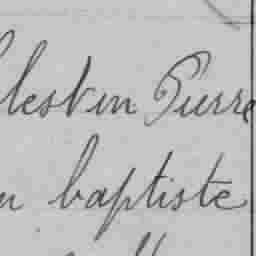 lestin Pierre
n baptiste